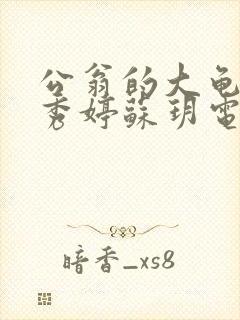 公翁的大龟
秀婷蘇玥電
暗香_xs8